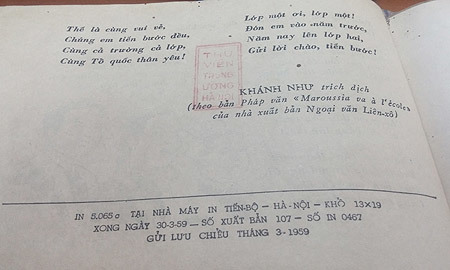 Thế là cùng vui vẻ,
Chúng em tiến bước đều,
Cùng cả trường cả lớp,
Cùng Tổ quốc thân yêu!
Lớp một ơi, lớp một!
Đón em vào năm trước,
Năm nay lên lớp hai,
Gửi lời chào, tiến bước!
THƯ
VIỆN
TRUNG
ƯƠNG
HÀ NỘI
KHÁNH NHƯ trích dịch
(theo bản Pháp văn «Maroussia va à l'école»
của nhà xuất bản Ngoại văn Liên-xô)
IN 5.065c TẠI NHÀ MÁY IN TIẾN-BỘ — HÀ-NỘI — KHỔ 13×19
XONG NGÀY 30-3-59 — SỐ XUẤT BẢN 107 — SỐ IN 0467
GỬI LƯU CHIỂU THÁNG 3-1959